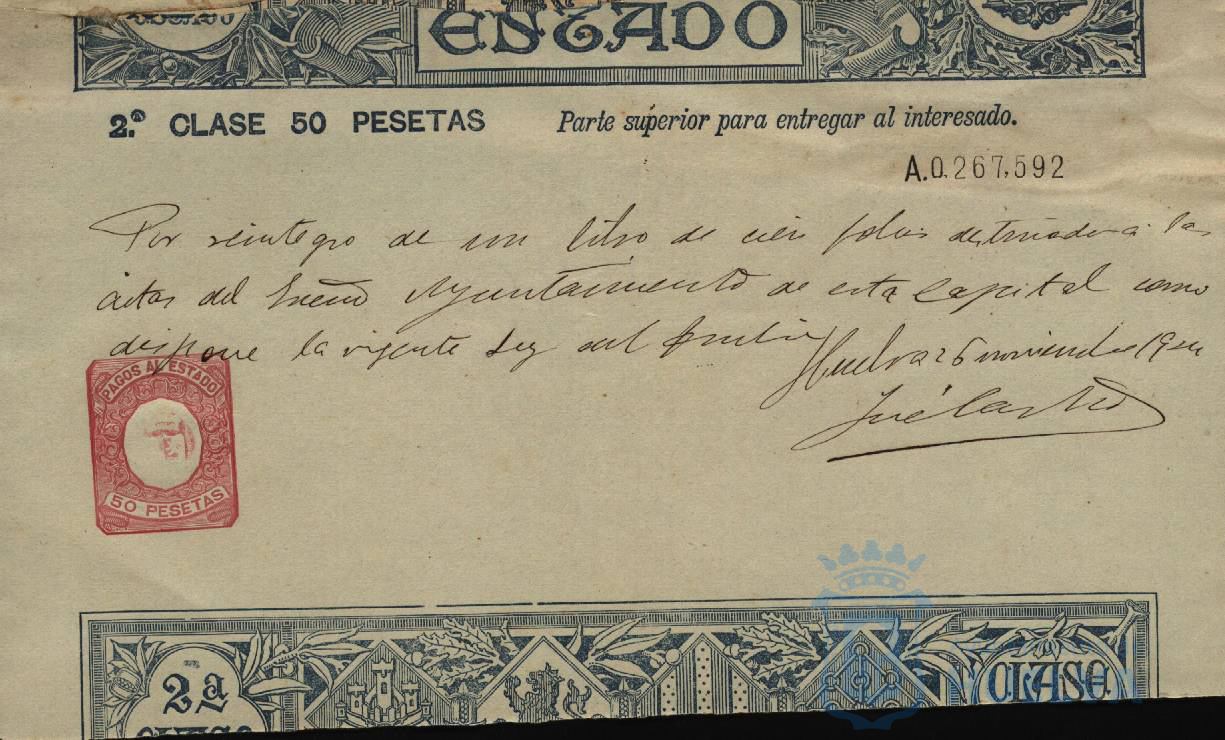 ESTADO
2.ª CLASE 50 PESETAS
Parte superior para entregar al interesado.
A.0.267,592
Por reintegro de un libro de cien folios destinados a las
actas del Excmo Ayuntamiento de esta Capital como
dispone la vigente Ley del timbre
Huelva 26 noviembre
José
PAGOS AL ESTADO
50 PESETAS
2ª
CLASE
CLASE